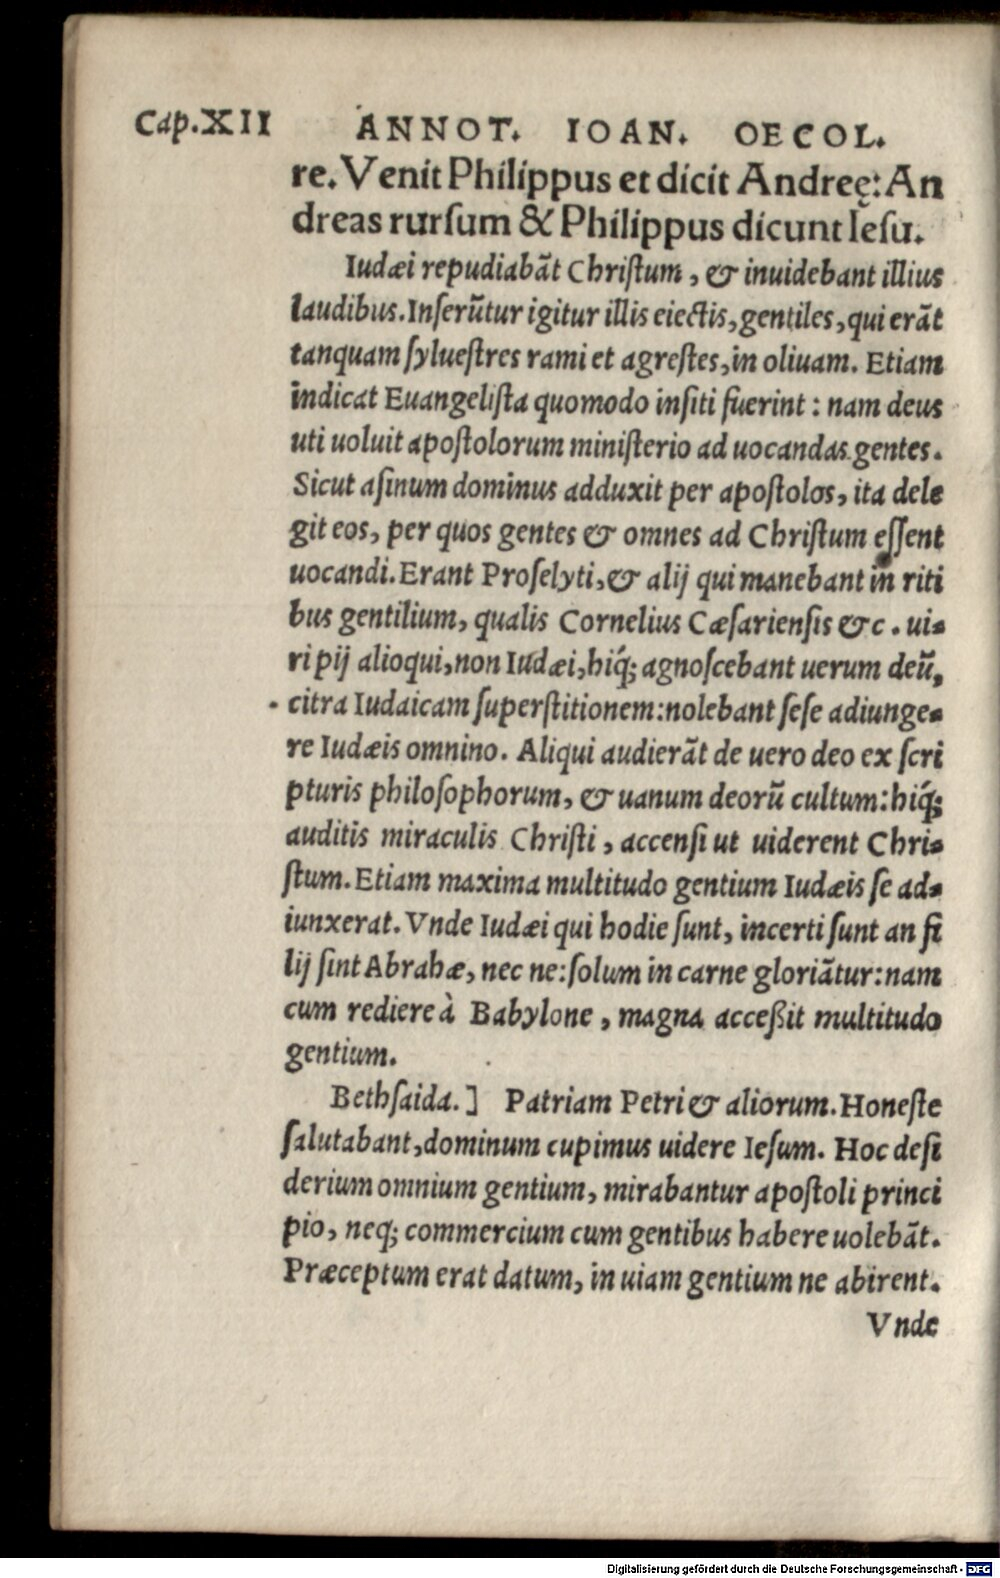 Cap.XII ANNOT. IOAN. OECOL.
re. Venit Philippus et dicit Andreę: An
dreas rurſum & Philippus dicunt Ieſu.
Iudæi repudiabãt Chriſtum, & inuidebant illius
laudibus. Inſerũtur igitur illis eiectis, gentiles, qui erãt
tanquam ſylueſtres rami et agreſtes, in oliuam. Etiam
indicat Euangeliſta quomodo inſiti fuerint: nam deus
uti uoluit apoſtolorum miniſterio ad uocandas gentes.
Sicut aſinum dominus adduxit per apoſtolos, ita dele
git eos, per quos gentes & omnes ad Chriſtum eſſent
uocandi. Erant Proſelyti, & alij qui manebant in riti
bus gentilium, qualis Cornelius Cæſarienſis &c. ui-
ri pij alioqui, non Iudæi, hiq́; agnoſcebant uerum deũ,
citra Iudaicam ſuperſtitionem: nolebant ſeſe adiunge-
re Iudæis omnino. Aliqui audierãt de uero deo ex ſcri
pturis philoſophorum, & uanum deorũ cultum: hiq́;
auditis miraculis Chriſti, accenſi ut uiderent Chri-
ſtum. Etiam maxima multitudo gentium Iudæis ſe ad-
iunxerat. Vnde Iudæi qui hodie ſunt, incerti ſunt an fi
lij ſint Abrahæ, nec ne: ſolum in carne gloriãtur: nam
cum rediere à Babylone, magna acceßit multitudo
gentium.
Bethſaida.] Patriam Petri & aliorum. Honeſte
ſalutabant, dominum cupimus uidere Ieſum. Hoc deſi
derium omnium gentium, mirabantur apoſtoli princi
pio, neq; commercium cum gentibus habere uolebãt.
Præceptum erat datum, in uiam gentium ne abirent.
Vnde
Digitalisierung gefördert durch die Deutsche Forschungsgemeinschaft - DFG